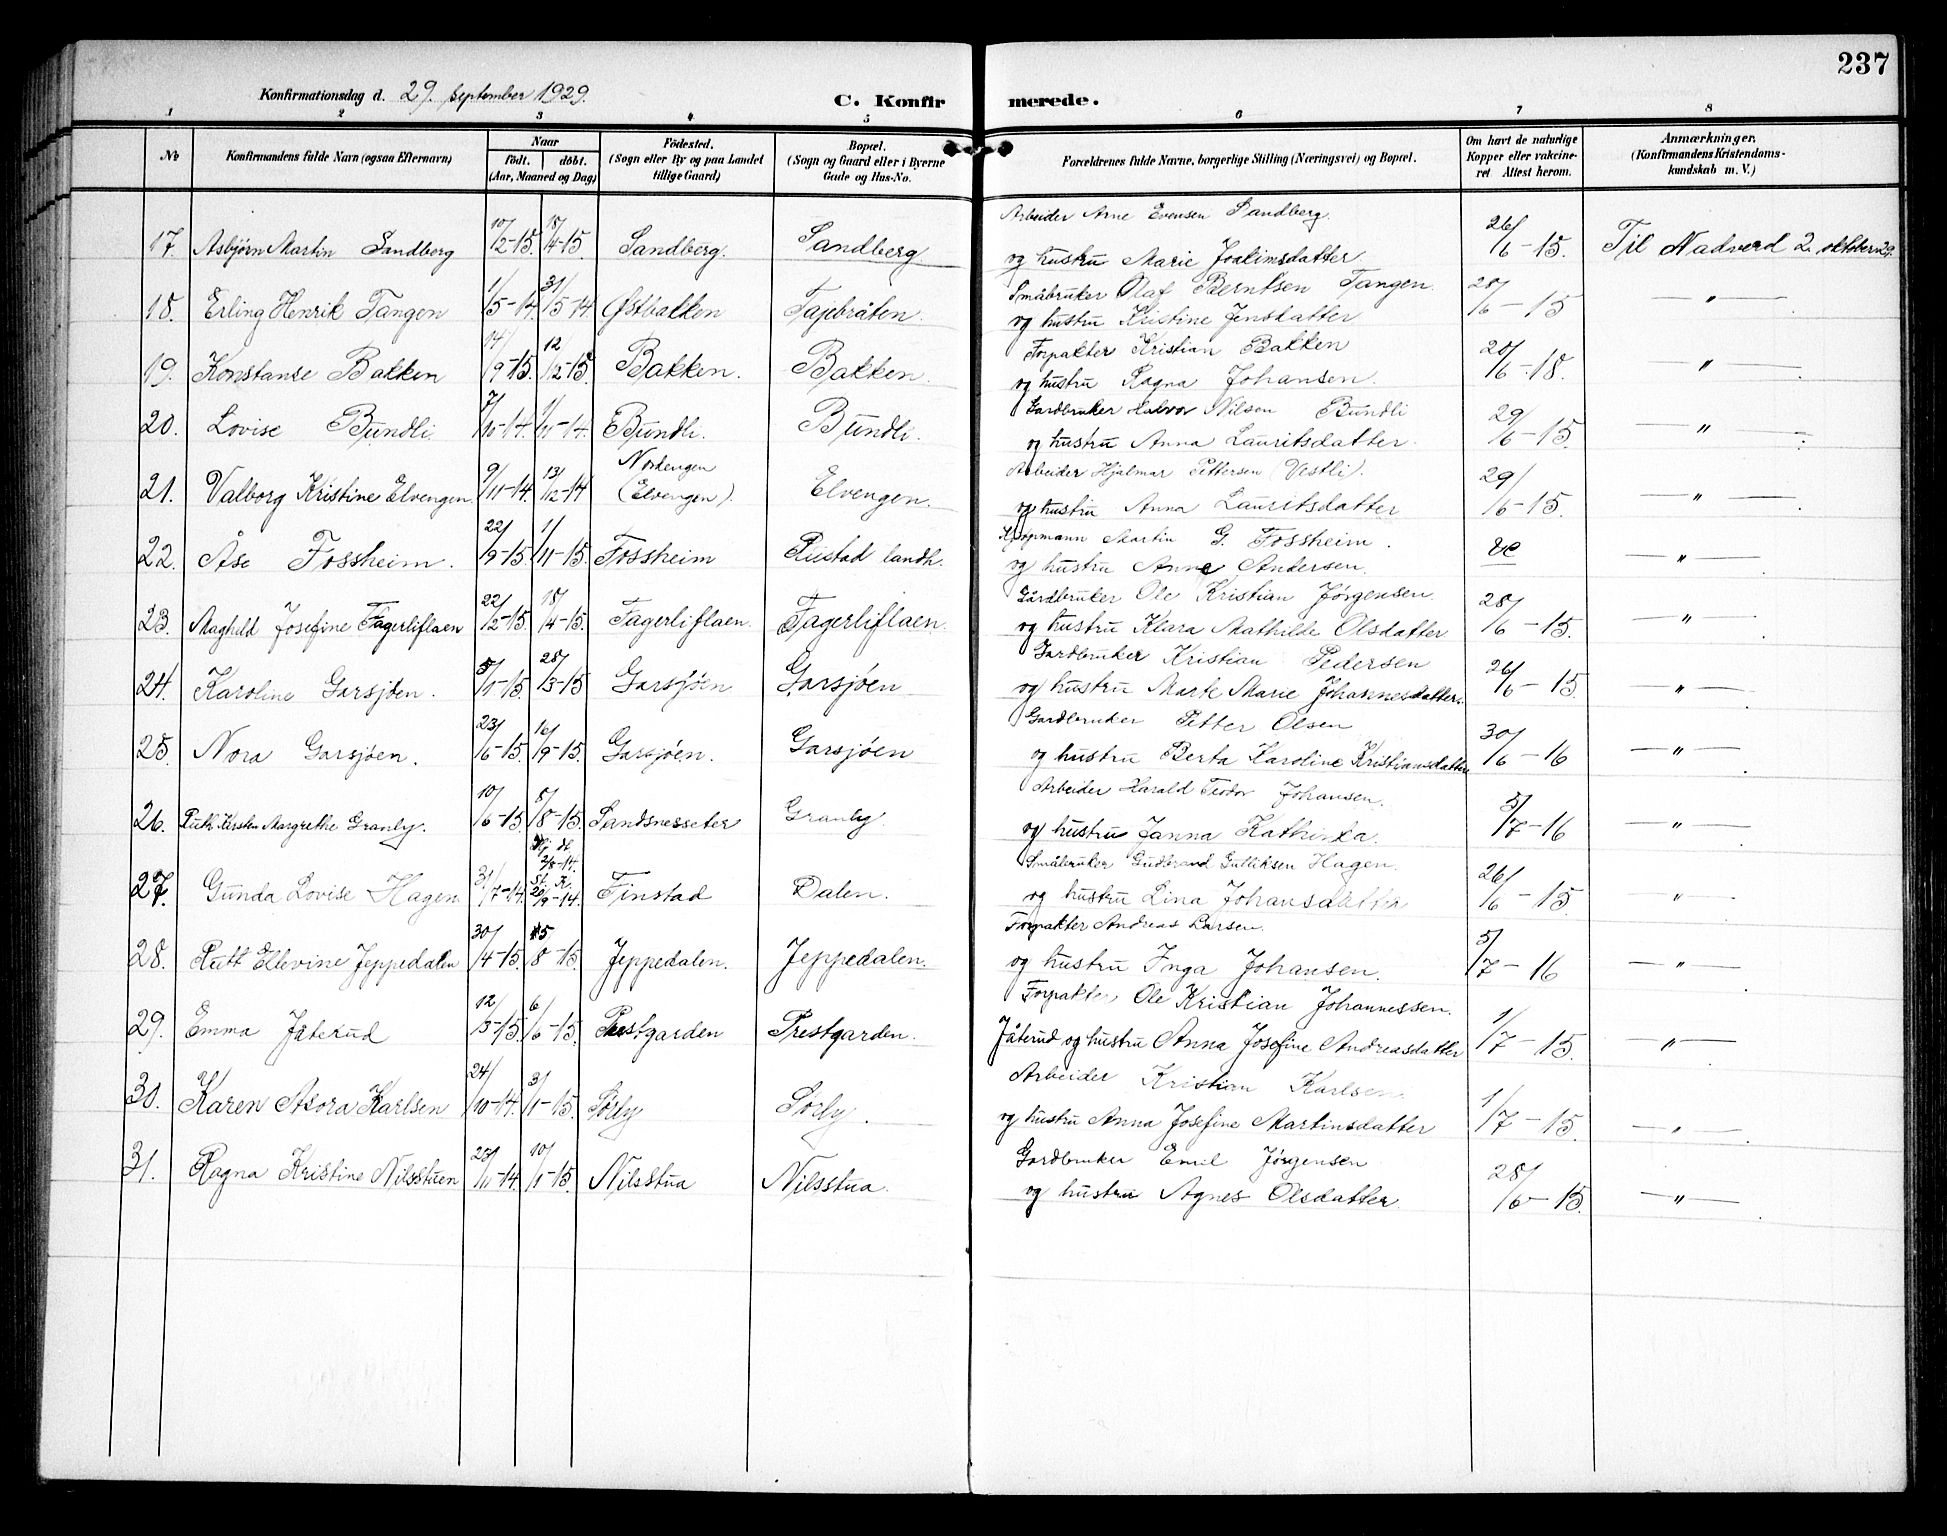 237
Konfirmationsdag d. 29. september 1929.
C. Konfirmerede.
1 2 3 4 5 6 7 8
No
Konfirmandens fulde Navn (ogsaa Efternavn)
Naar
födt. döbt.
(Aar, Maaned og Dag)
Födested.
(Sogn eller By og paa Landet
tillige Gaard)
Bopæl.
(Sogn og Gaard eller i Byerne
Gade og Hus-No.
Forældrenes fulde Navne, borgerlige Stilling (Næringsvei) og Bopæl.
Om havt de naturlige
Kopper eller vakcine-
ret Attest herom.
Anmærkninger.
(Konfirmandens Kristendoms-
kundskab m. V.)
Arbeider Arne Evensen Sandberg.
17. Asbjørn Martin Sandberg 10/2-15. 18/4-15. Sandberg. Sandberg og hustru Marie Joakimsdatter 26/6-15. Til Nadverd 2. oktober 29.
Småbruker Olaf Berntsen Tangen.
18. Erling Henrik Tangen 1/5-14. 31/5-14 Østbakken Tajebråten. og hustru Kristine Jensdatter 28/6-15 —"—
Forpakter Kristian Bakken
19. Konstanse Bakken 14/9-15. 12/12-15. Bakken. Bakken. og hustru Ragna Johansen. 28/6-18. —"—
Gardbruker Halvor Nilsen Bundli
20. Lovise Bundli. 7/10-14. 1/11-14. Bundli. Bundli. og hustru Anna Lauritsdatter. 29/6-15. —"—
Arbeider Hjalmar Pettersen (Vestli).
21. Valborg Kristine Elvengen 9/11-14. 13/12-14 Nordengen (Elvengen). Elvengen. og hustru Anna Lauritsdatter 29/6-15. —"—
Kjøpmann Martin G. Fossheim.
22. Åse Fossheim. 22/9-15. 1/11-15. Fossheim Rustad landh. og hustru Anne Andersen. —"—
Gårdbruker Ole Kristian Jørgensen.
23. Maghild Josefine Fagerliflaen 22/2-15. 18/4-15. Fagerliflaen. Fagerliflaen. og hustru Klara Mathilde Olsdatter 28/6-15. —"—
Gardbruker Kristian Pedersen
24. Karoline Garsjøen. 5/1-15. 28/3-15 Garsjøen Garsjøen og hustru Marte Marie Johannesdatter. 26/6-15. —"—
Gardbruker Petter Olsen
25. Nora Garsjøen. 23/6-15. 16/9-15. Garsjøen. Garsjøen og hustru Berta Karoline Kristiansdatter 30/6-16 —"—
Arbeider Harald Teodor Johansen.
26. Ruth Kirsten Margrethe Granly. 10/6-15 8/8-15. Sandsnesseter Granly. og hustru Janna Kathinka. 5/7-16 —"—
Småbruker Gudbrand Gulliksen Hagen.
27. Gunda Lovise Hagen 31/7-14. Hj. d. 2/8-14. St. K. 20/9-14. Finstad Dalen. og hustru Lina Johansdatter 26/6-15. —"—
Forpakter Andreas Larsen.
28. Rutt Ellevine Jeppedalen 30/4-15. 15/8-15. Jeppedalen. Jeppedalen. og hustru Inga Johansen. 5/7-16 —"—
Forpakter Ole Kristian Johannessen.
29. Emma Jåterud 12/3-15. 6/6-15. Prestgarden Prestgarden. Jåterud og hustru Anna Josefine Andreasdatter 1/7-15. —"—
Arbeider Kristian Karlsen.
30. Karen Asora Karlsen 24/10-14. 3/1-15. Sørly Sørly. og hustru Anna Josefine Martinsdatter 1/7-15. —"—
Gardbruker Emil Jørgensen
31. Ragna Kristine Nilsstuen 28/11-14 10/1-15. Nilsstua Nilsstua. og hustru Agnes Olsdatter. 28/6-15. —"—